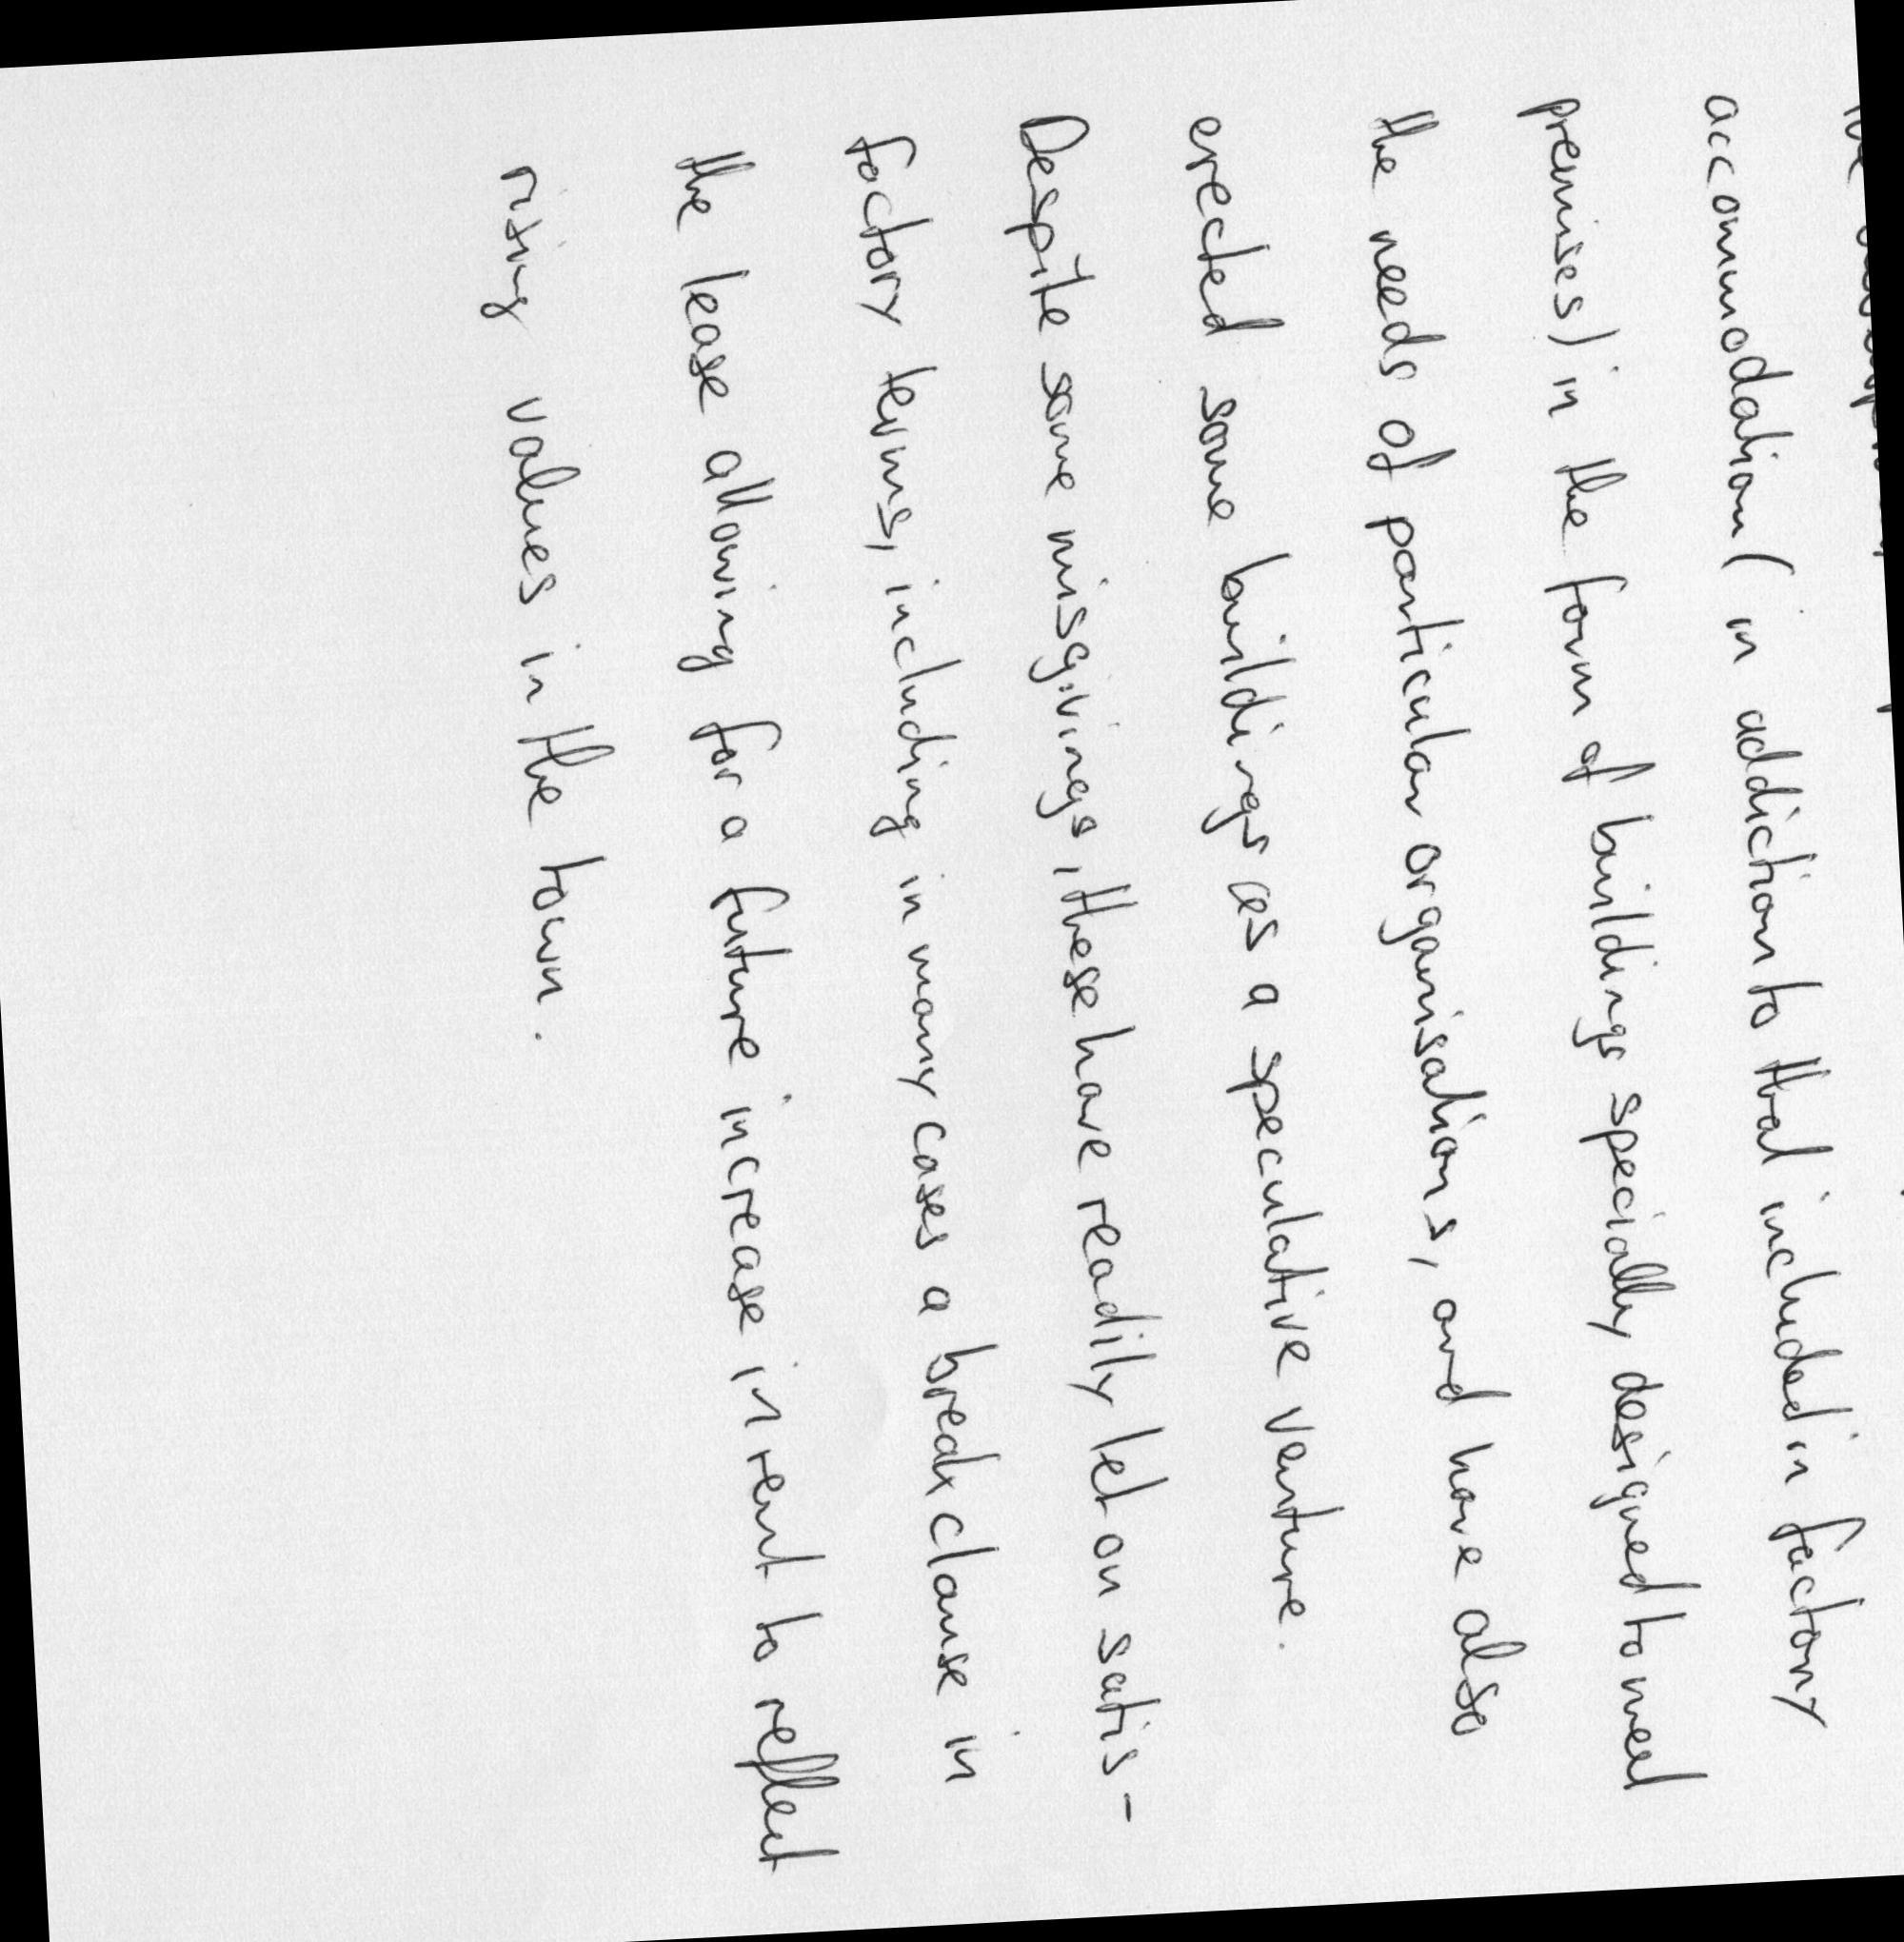 accommodation (in addiction to that included in factory
premises) in the form of buildings specially designed to meet
the needs of particular organisations, and have also
erected some buildings as a speculative venture.
Despite some misgivings, these have readily let on satis-
factory terms, including in many cases a break clause in
the lease allowing for a future increase in rent to reflect
rising values in the town.